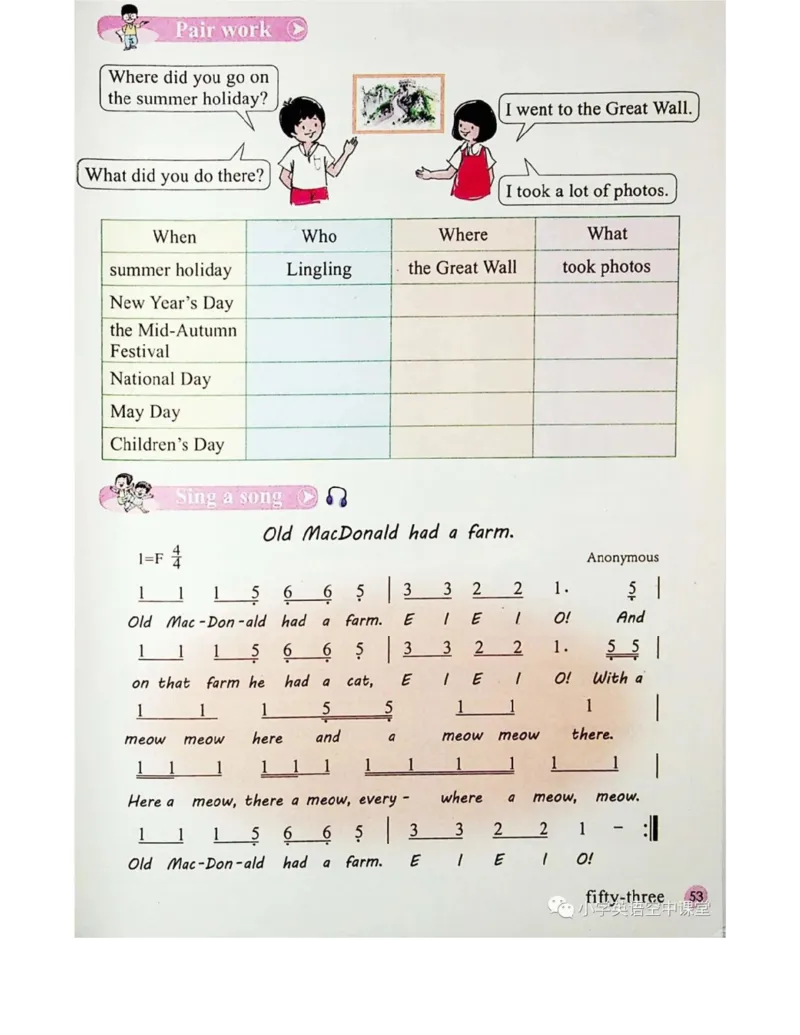 Pair work
Where did you go on
the summer holiday?
I went to the Great Wall.
What did you do there?
I took a lot of photos.
When Who Where What
summer holiday Lingling the Great Wall took photos
New Year's Day
the Mid-Autumn
Festival
National Day
May Day
Children's Day
Sing a song
Old MacDonald had a farm.
1=F 4/4 Anonymous
1 1 1 5 6 6 5 | 3 3 2 2 1. 5 |
Old Mac-Don-ald had a farm. E I E I O! And
1 1 1 5 6 6 5 | 3 3 2 2 1. 5 5 |
on that farm he had a cat, E I E I O! With a
1 1 1 5 5 1 1 1 |
meow meow here and a meow meow there.
1 1 1 1 1 1 1 1 1 1 1 1 |
Here a meow, there a meow, every- where a meow, meow.
1 1 1 5 6 6 5 | 3 3 2 2 1 - :‖
Old Mac-Don-ald had a farm. E I E I O!
fifty-three 53
小学英语空中课堂